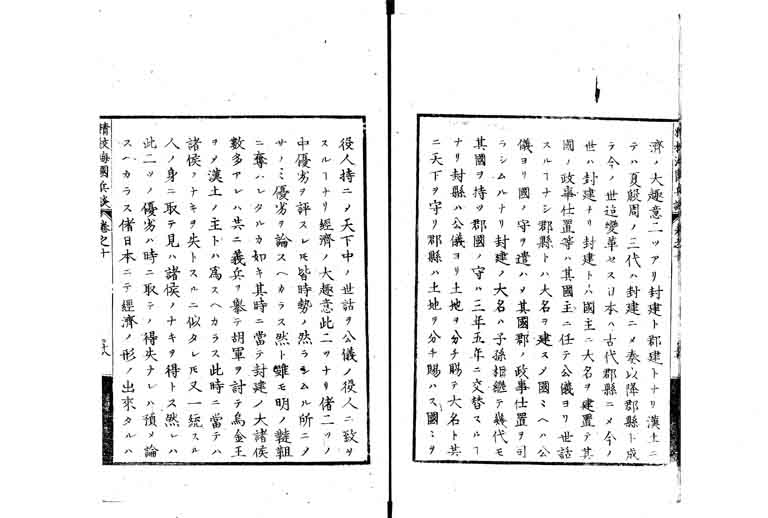 濟ノ大趣意二ツアリ封建ト郡建トナリ漢土ニ
テハ夏殷周ノ三代ハ封建ニメ秦以降郡縣ト成
テ今ノ世迄變革セス日本ハ古代郡縣ニメ今ノ
世ハ封建ナリ封建トハ國主ニ大名ヲ建置テ其
國ノ政事仕置等ハ其國主ニ任テ公儀ヨリ世話
スルヿナシ郡縣トハ大名ヲ建スメ國ミヘハ公
儀ヨリ國ノ守ヲ遣ハメ其國郡ノ政事仕置ヲ司
ラシムルナリ封建ノ大名ハ子孫相繼テ幾代モ
其國ヲ持ツ郡國ノ守ハ三年五年ニ交替スルヿ
ナリ封縣ハ公儀ヨリ土地ヲ分チ賜テ大名ト共
ニ天下ヲ守リ郡縣ハ土地ヲ分チ賜ハス國ミヲ
役人持ニメ天下中ノ世話ヲ公儀ノ役人ニ致サ
スルヿナリ經濟ノ大趣意此二ツナリ偖二ツノ
中優劣ヲ評スレモ皆時勢ノ然ラシムル所ニメ
サノミ優劣ヲ論スヘカラス然ト雖モ明ノ韃靼
ニ奪ハレタルカ如キ其時ニ當テ封建ノ大諸侯
數多アレハ共ニ義兵ヲ擧テ胡軍ヲ討テ烏金王
ヲメ漢土ノ主トハ爲スヘカラス此時ニ當テハ
諸侯ノナキヲ失トスルニ似タレモ又一統スル
人ノ身ニ取テ見ハ諸侯ノナキヲ得トス然レハ
此二ツノ優劣ハ時ニ取テノ得失ナレハ預メ論
スヘカラス偖日本ニテ經濟ノ形ノ出來タルハ
精校海國兵談 卷之十